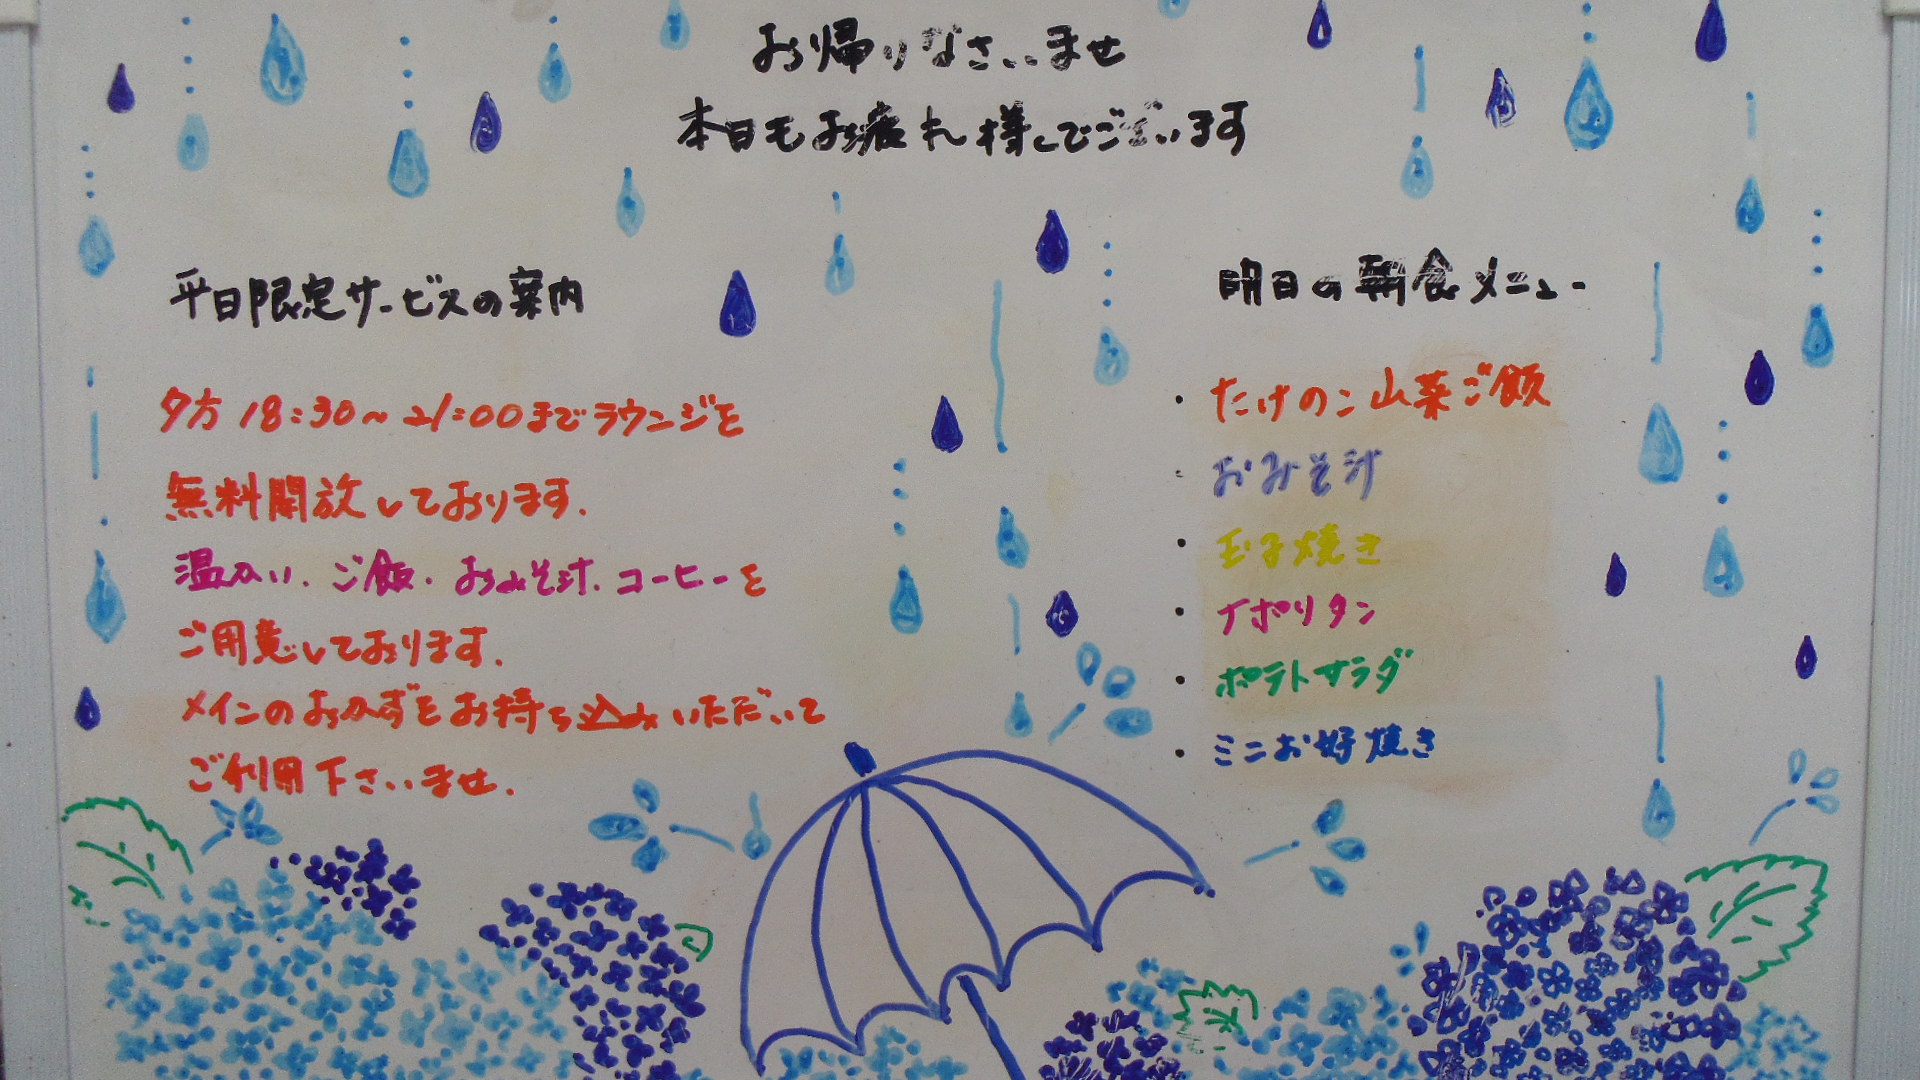 お帰りなさいませ
本日もお疲れ様でございます
平日限定サービスの案内
夕方18:30～21:00までラウンジを
無料開放しております.
温かい、ご飯、おみそ汁、コーヒーを
ご用意しております.
メインのおかずをお持ち込みいただいて
ご利用下さいませ.
明日の朝食メニュー
・たけのこ山菜ご飯
・おみそ汁
・玉子焼き
・ナポリタン
・ポテトサラダ
・ミニお好焼き